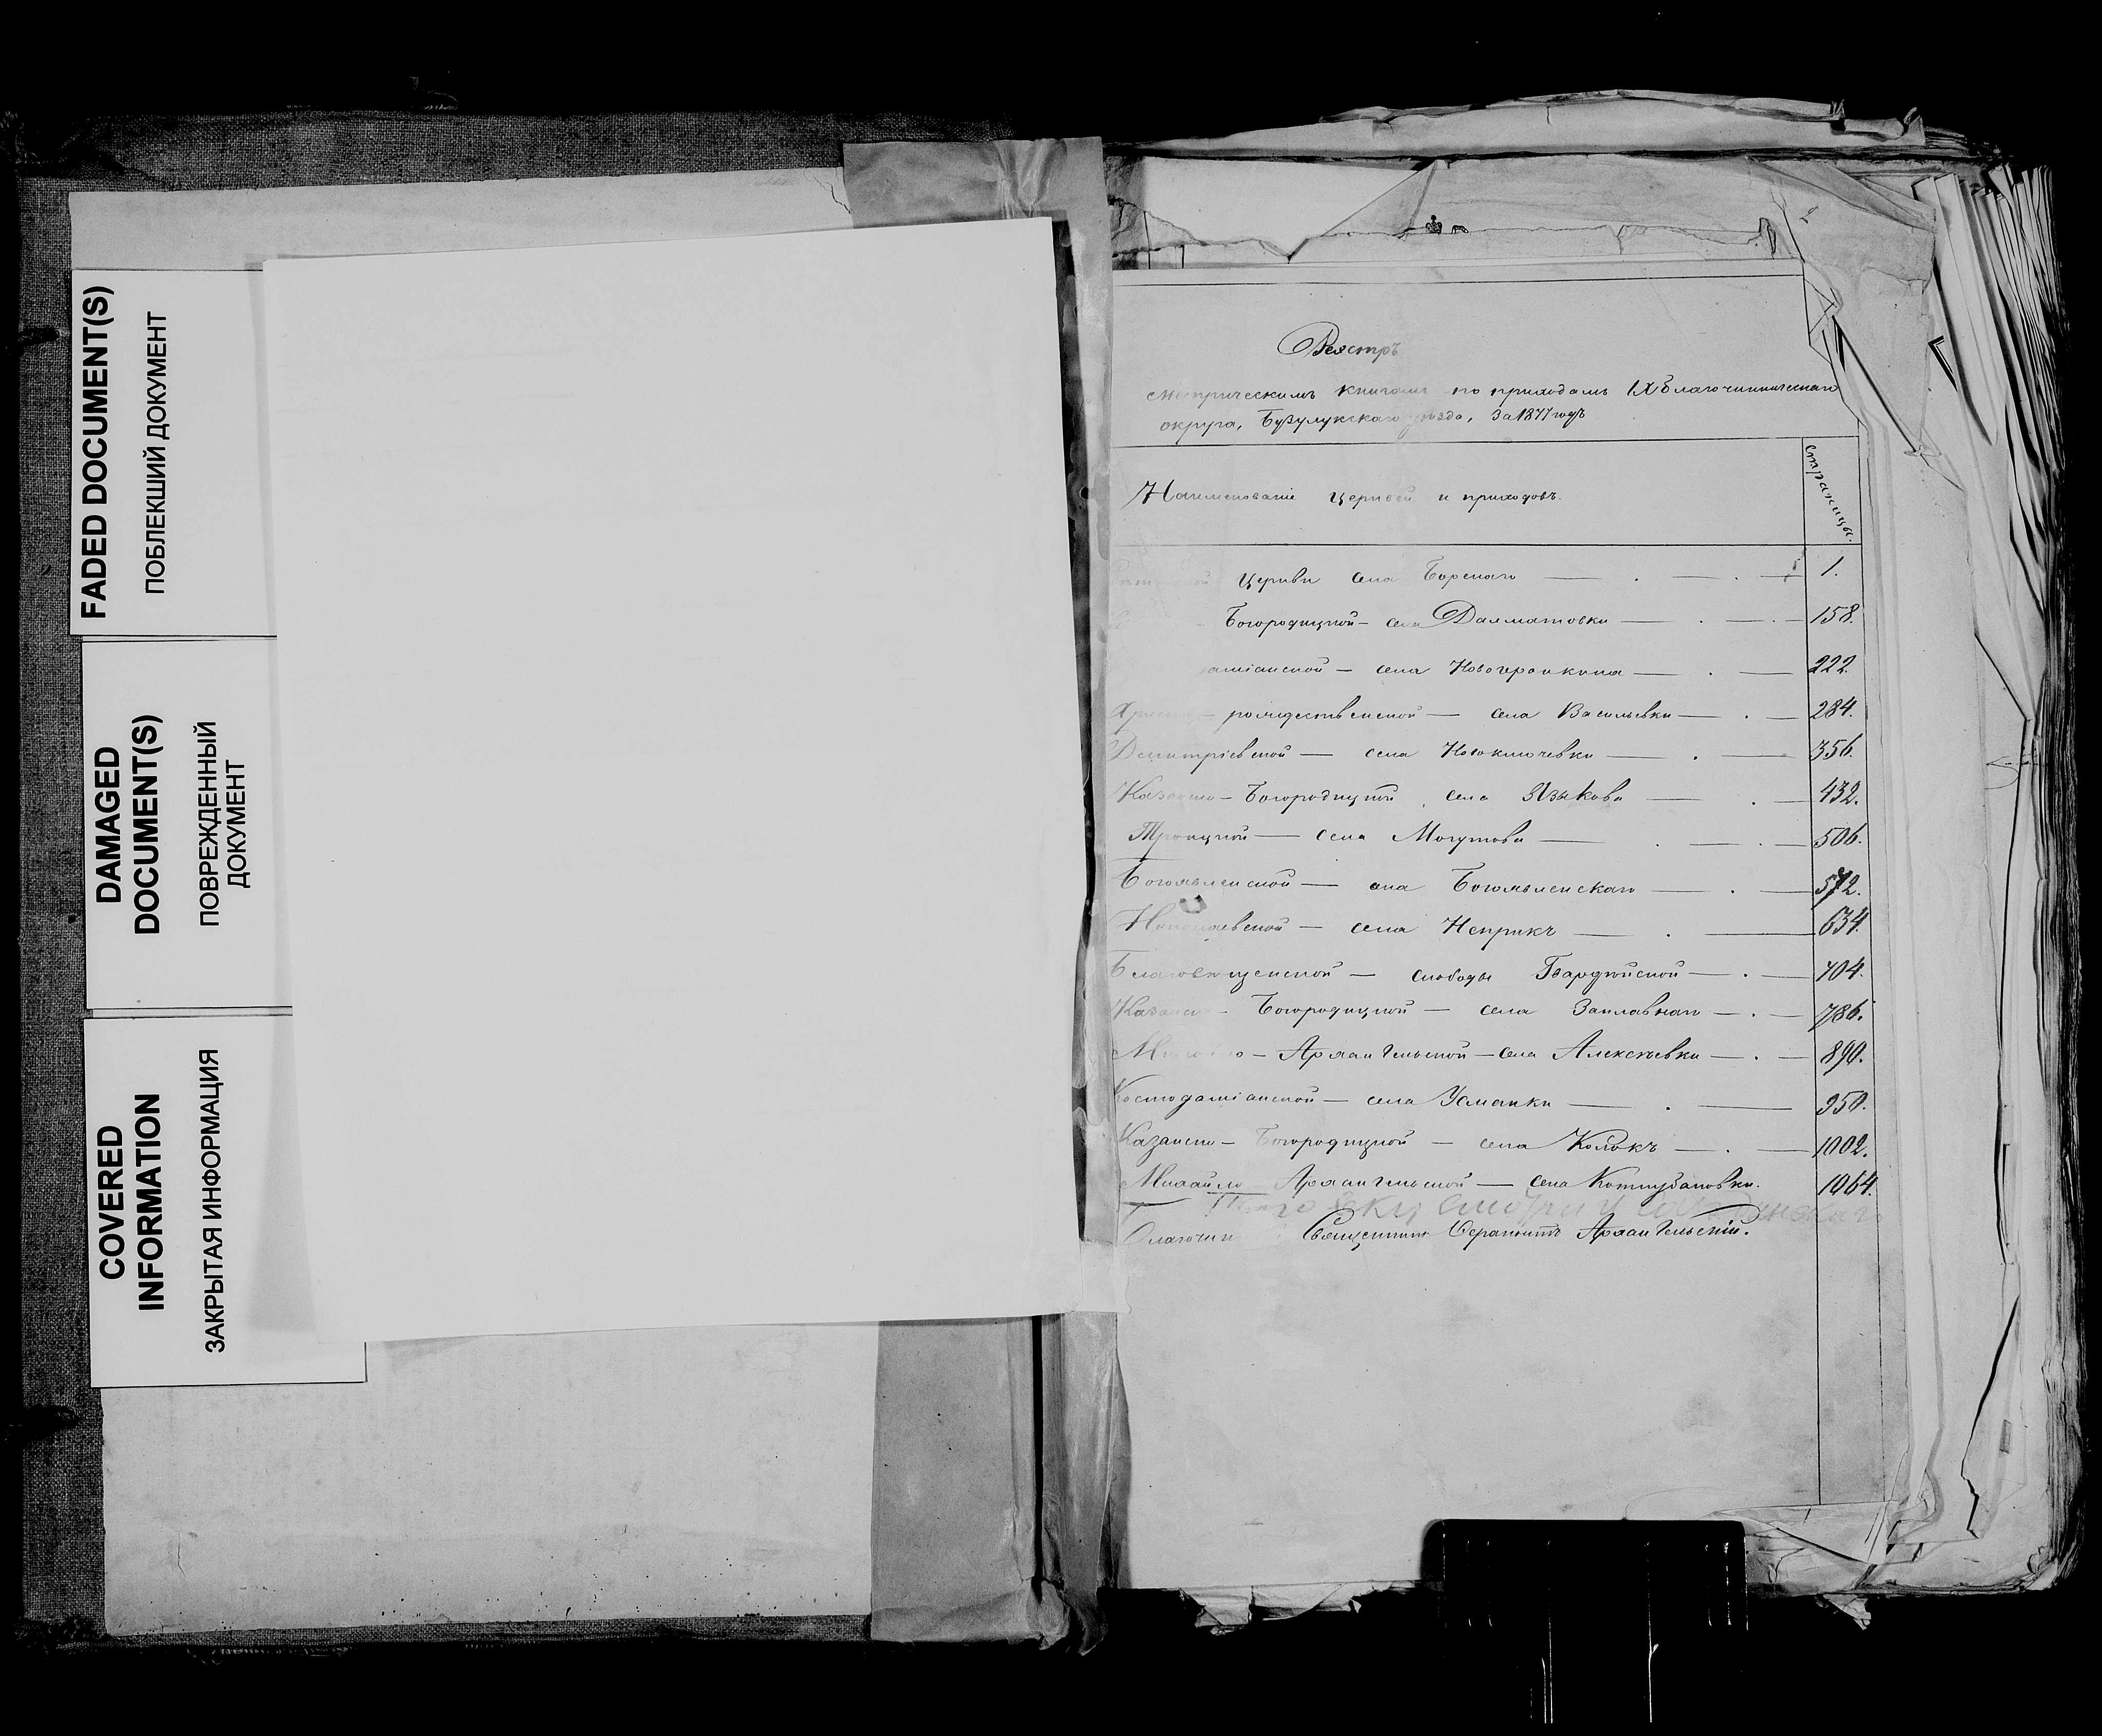 FADED DOCUMENT(S)
ПОБЛЕКШИЙ ДОКУМЕНТ
DAMAGED
DOCUMENT(S)
ПОВРЕЖДЕННЫЙ
ДОКУМЕНТ
COVERED
INFORMATION
ЗАКРЫТАЯ ИНФОРМАЦИЯ
Реестръ
метрическимъ книгамъ по приходамъ IX благочинническаго
округа, Бузулукскаго уѣзда, за 1877 годъ
Наименованіе церквей и приходовъ.
страницы.
церкви села Борскаго 1.
Богородицкой – села Далматовки 158.
аміанской – села 222.
Христо – рождественской – села Васильевки 284.
Димитріевской – села Новоключевки 356.
Казанско – Богородицкой села Языкова 432.
Троицкой – села Могутова 506.
Богоявленской – села Богоявленскаго 572.
Николаевской – села Неприкъ 634.
Благовѣщенской – слободы Гвардейской 704.
Казанско – Богородицкой – села Заплавнаго 786.
Михайло – Архангельской – села Алексѣевки 890.
Космодаміанской – села Усманки 950.
Казанско – Богородицкой – села Колокъ 1002.
Михайло Архангельской – села Котлубановки. 1064.
Благочин Священникъ Архангельскій.